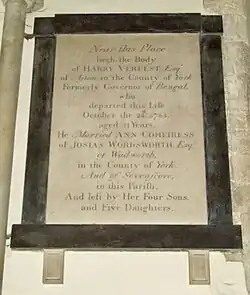 Near this Place
lieth the Body
of HARRY VERELST Esqr
of Aston in the County of York
Formerly Governor of Bengal,
who
departed this Life
October the 24th 1785.
aged 51 Years,
He Married ANN COHEIRESS
of JOSIAS WORDSWORTH Esqr
of Wadworth,
in the County of York,
And of Sevenscore,
in this Parish,
And left by Her Four Sons,
and Five Daughters.